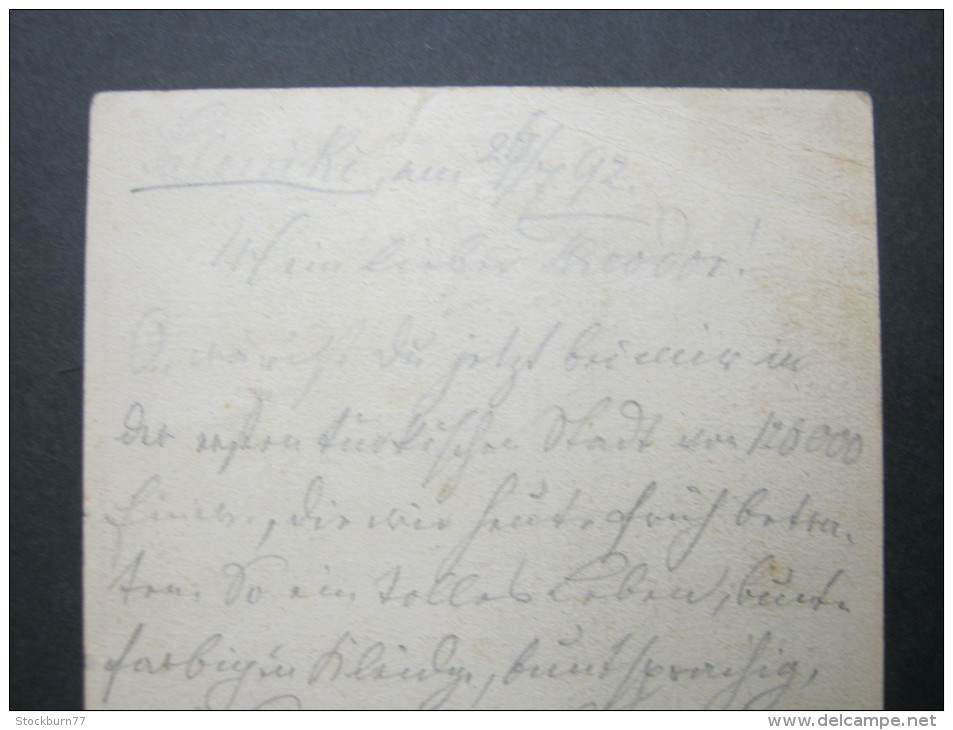 Saloniki, am 25/7 92.
Mein lieber Theodor!
O, wärest du jetzt bei mir in
der ersten türkischen Stadt von 126000
Einw., die wir heute früh betra-
ten. So ein tolles Leben, bunt
farbigen Kleidg., buntsprachig,
Stockburn77
www.delcampe.net